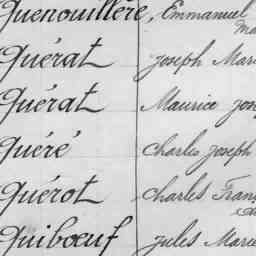 Quenouillère, Emmanuel
Quérat Joseph Mari
Quérat Maurice Jos
Quéré Charles Joseph
Quérot Charles Franç
Quibœuf Jules Marie